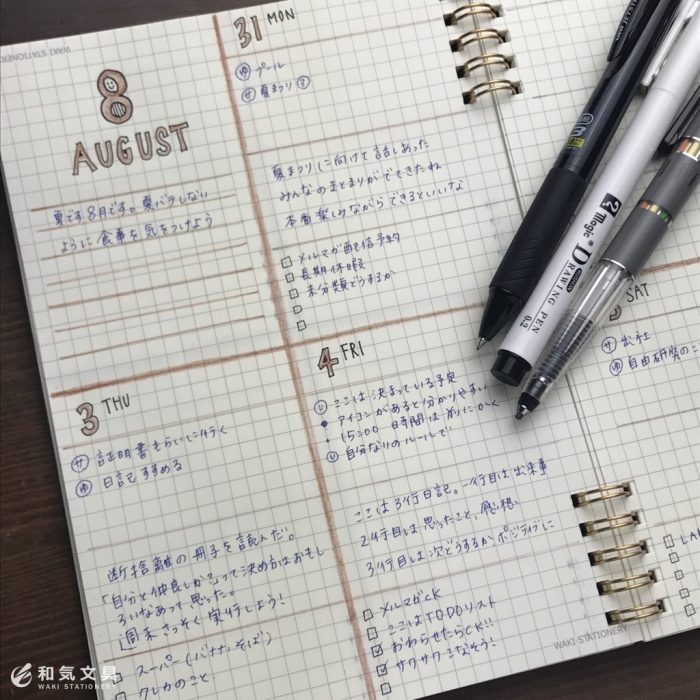 WAKI STATIONERY
8
AUGUST
夏です8月です。夏バテしない
ように食事を気をつけよう
31 MON
ゆ プール
サ 夏まつり ③
夏まつりに向けて話しあった
みんなのまとまりがでてきたね
本番楽しみながらできるといいな
メルマガ配信予約
長期休暇
未分類どうするか
3 THU
サ 証明書もらいに行く
ゆ 日記すすめる
断捨離の冊子を読んだ。
「自分と仲良しか」って決め方はおもし
ろいなあって思った。
週末さっそく実行しよう!
スーパー(バナナ、そば)
クレカのこと.
4 FRI
ここは決まっている予定
アイコンがあると分かりやすい
15:00 時間は前にかく
自分なりのルールで
ここは3行日記。一行目は出来事
2行目は思ったこと、感想
3行目は次どうするか、ポジティブに
メルマガCK
ここはTODOリスト
おわらせたらCK!!
サクサクこなそう!
WAKI STATIONERY
SAT
サ 出社
ゆ 自由研究のこ
LA
2 Magic DRAWING PEN 0.2
和気文具
WAKI STATIONERY